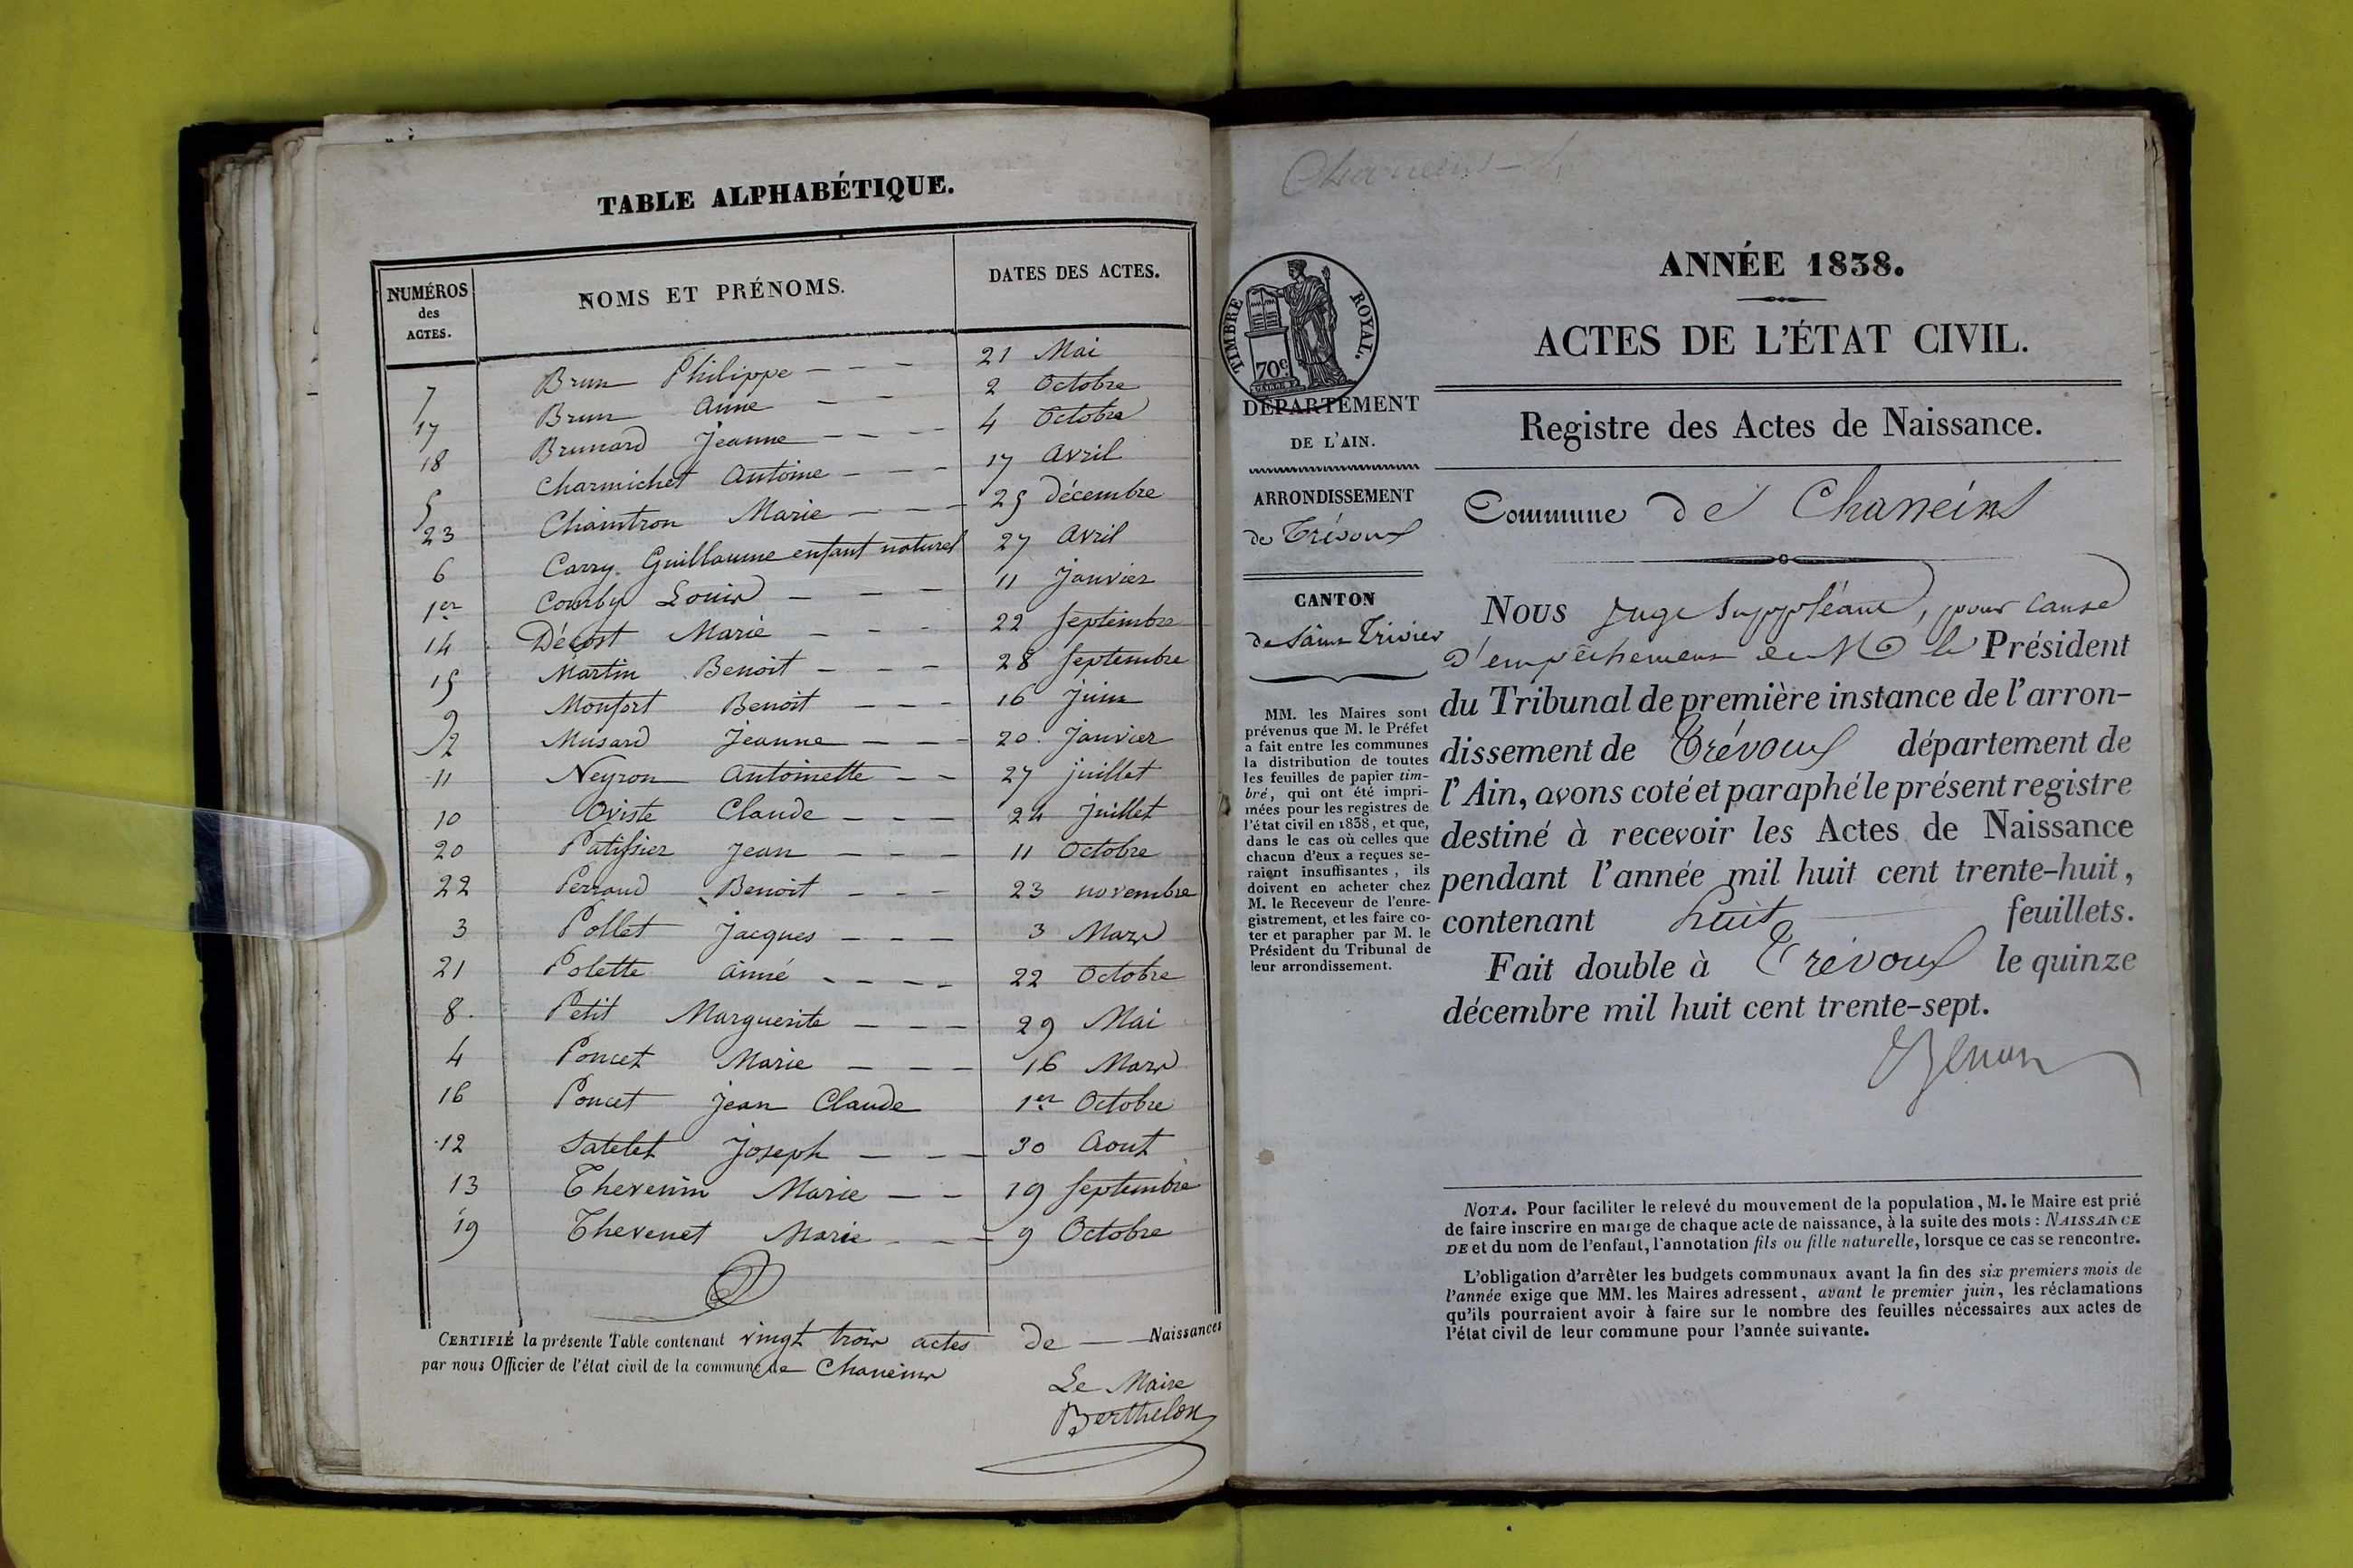 TABLE ALPHABÉTIQUE.
NUMÉROS des ACTES. NOMS ET PRÉNOMS. DATES DES ACTES.
7 Brun Philippe - - - 21 Mai
17 Brun Anne - - 2 Octobre
18 Brunard Jeanne - - - - 4 Octobre
5 Charmichet Antoine - - - 17 Avril
23 Chaintron Marie - - - 25 Décembre
6 Carry Guillaume enfant naturel 27 Avril
1er Courby Louis - - - 11 Janvier
14 Décost Marie - - - 22 Septembre
15 Martin Benoit - - - 28 Septembre
9 Monfort Benoit - - - 16 Juin
2 Musard Jeanne - - - 20 Janvier
11 Neyron Antoinette - - 27 juillet
10 Oviste Claude - - - 24 juillet
20 Patissier Jean - - - 11 Octobre
22 Perraud Benoit - - - 23 novembre
3 Pollet Jacques - - - 3 Mars
21 Polette aimé - - - - 22 Octobre
8. Petit Marguerite - - - 29 Mai
4 Poncet Marie - - - 16 Mars
16 Poncet Jean Claude 1er Octobre
12 Satelet Joseph - - - 30 Aout
13 Thevenin Marie - - 19 Septembre
19 Thevenet Marie - - - 9 Octobre
CERTIFIÉ la présente Table contenant vingt trois actes de — Naissances
par nous Officier de l'état civil de la commune de Chaneins
Le Maire
Berthelon
Chaneins
ANNÉE 1838.
ACTES DE L'ÉTAT CIVIL.
Registre des Actes de Naissance.
Commune de Chaneins
TIMBRE ROYAL.
70c.
DÉPARTEMENT
DE L'AIN.
ARRONDISSEMENT
de Trévoux
CANTON
de Saint Trivier
MM. les Maires sont
prévenus que M. le Préfet
a fait entre les communes
la distribution de toutes
les feuilles de papier tim-
bré, qui ont été impri-
mées pour les registres de
l'état civil en 1838, et que,
dans le cas où celles que
chacun d'eux a reçues se-
raient insuffisantes, ils
doivent en acheter chez
M. le Receveur de l'enre-
gistrement, et les faire co-
ter et parapher par M. le
Président du Tribunal de
leur arrondissement.
NOUS Juge Suppléant, pour cause
d'empêchement de M le Président
du Tribunal de première instance de l'arron-
dissement de Trévoux département de
l'Ain, avons coté et paraphé le présent registre
destiné à recevoir les Actes de Naissance
pendant l'année mil huit cent trente-huit,
contenant huit feuillets.
Fait double à Trévoux le quinze
décembre mil huit cent trente-sept.
NOTA. Pour faciliter le relevé du mouvement de la population, M. le Maire est prié
de faire inscrire en marge de chaque acte de naissance, à la suite des mots : NAISSANCE
DE et du nom de l'enfant, l'annotation fils ou fille naturelle, lorsque ce cas se rencontre.
L'obligation d'arrêter les budgets communaux avant la fin des six premiers mois de
l'année exige que MM. les Maires adressent, avant le premier juin, les réclamations
qu'ils pourraient avoir à faire sur le nombre des feuilles nécessaires aux actes de
l'état civil de leur commune pour l'année suivante.